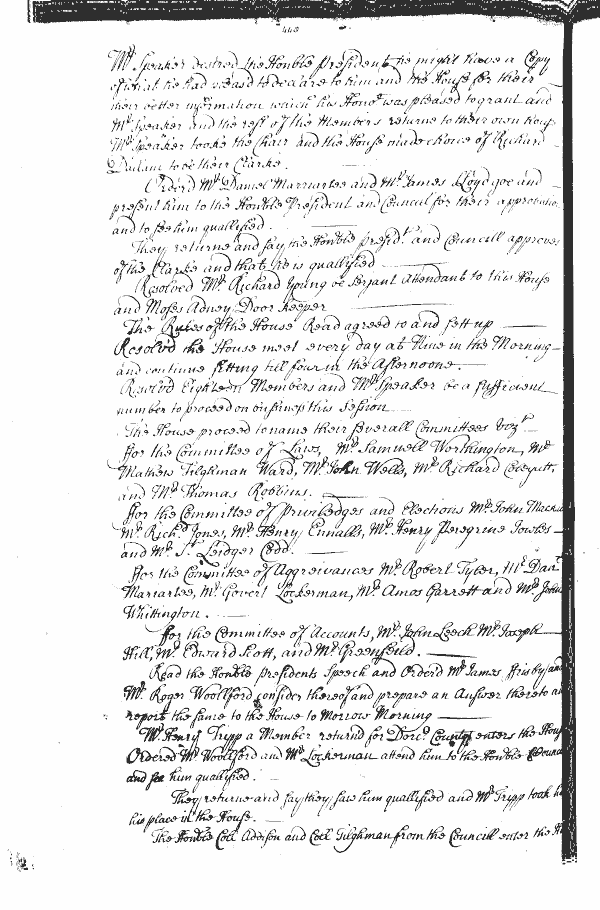 440
Mr. Speaker desired the Honble President he might have a Copy
of what he had pleased to declare to him and the House for their
their better information which his Honor was pleased to grant and
Mr. Speaker and the rest of the Members returne to their own house
Mr. Speaker tooke the Chair and the House made choice of Richard
Dallam to be their Clarke.
Orderd Mr. Daniel Marriartee and Mr. James Lloyd goe and
present him to the Honble President and Councill for their approbation
and to see him quallified.
They returne and say the Honble Presidt. and Councill approves
of the Clarke and that he is quallified
Resolved Mr. Richard Young be Serjant Attendant to this House
and Moses Adney Door keeper
The Rules of the House Read agreed to and sett up
Resolv'd the House meet every day at Nine in the Morning
and continue sitting till four in the Afternoone.
Resolv'd Eighteen Members and Mr. Speaker be a sufficient
number to proceed on business this Session
The House proceed to name their severall Committees vizt.
ffor the Committee of Laws, Mr. Samuell Worthington, Mr.
Mathew Tilghman Ward, Mr. John Wells, Mr. Richard
and Mr. Thomas Robbins.
ffor the Committee of Priviledges and Elections Mr. John Macka
Mr. Richd. Jones, Mr. Henry Ennalls, Mr. Henry Peregrine Jowles
and Mr. St. Leidger Codd.
ffor the Committee of Aggreivances Mr. Robert Tyler, Mr. Danl.
Mariartee, Mr. Govert Lockerman, Mr. Amos Garrett and Mr. John
Whittington.
ffor the Committee of Accounts, Mr. John Leech Mr. Joseph
Hill, Mr. Edward Scott, and Mr. Greenfeild.
Read the Honble Presidents Speech and Orderd Mr. James ffrisby and
Mr. Roger Woollford consider thereof and prepare an Answer thereto and
report the same to the House to Morrow Morning
Mr. Henry Tripp a Member returned for Dorr. County enters the House
Ordered Mr. Woollford and Mr. Lockerman attend him to the Honble Councill
and see him quallified.
They returne and say they saw him quallified and Mr. Tripp took h
his place in the House.
The Honble Coll Addison and Coll Tilghman from the Councill enter the H